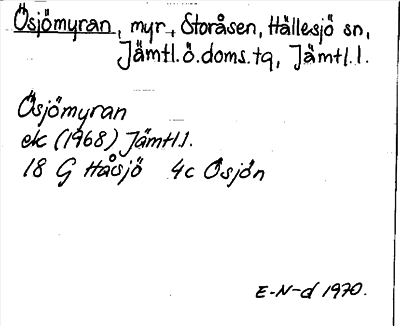 Ösjömyran, myr, Storåsen, Hällesjö sn,
Jämtl.ö.doms.tq, Jämtl.l.
Ösjömyran
ek (1968) Jämtl.l.
18 G Håsjö 4c Ösjön
E-N-d 1970.